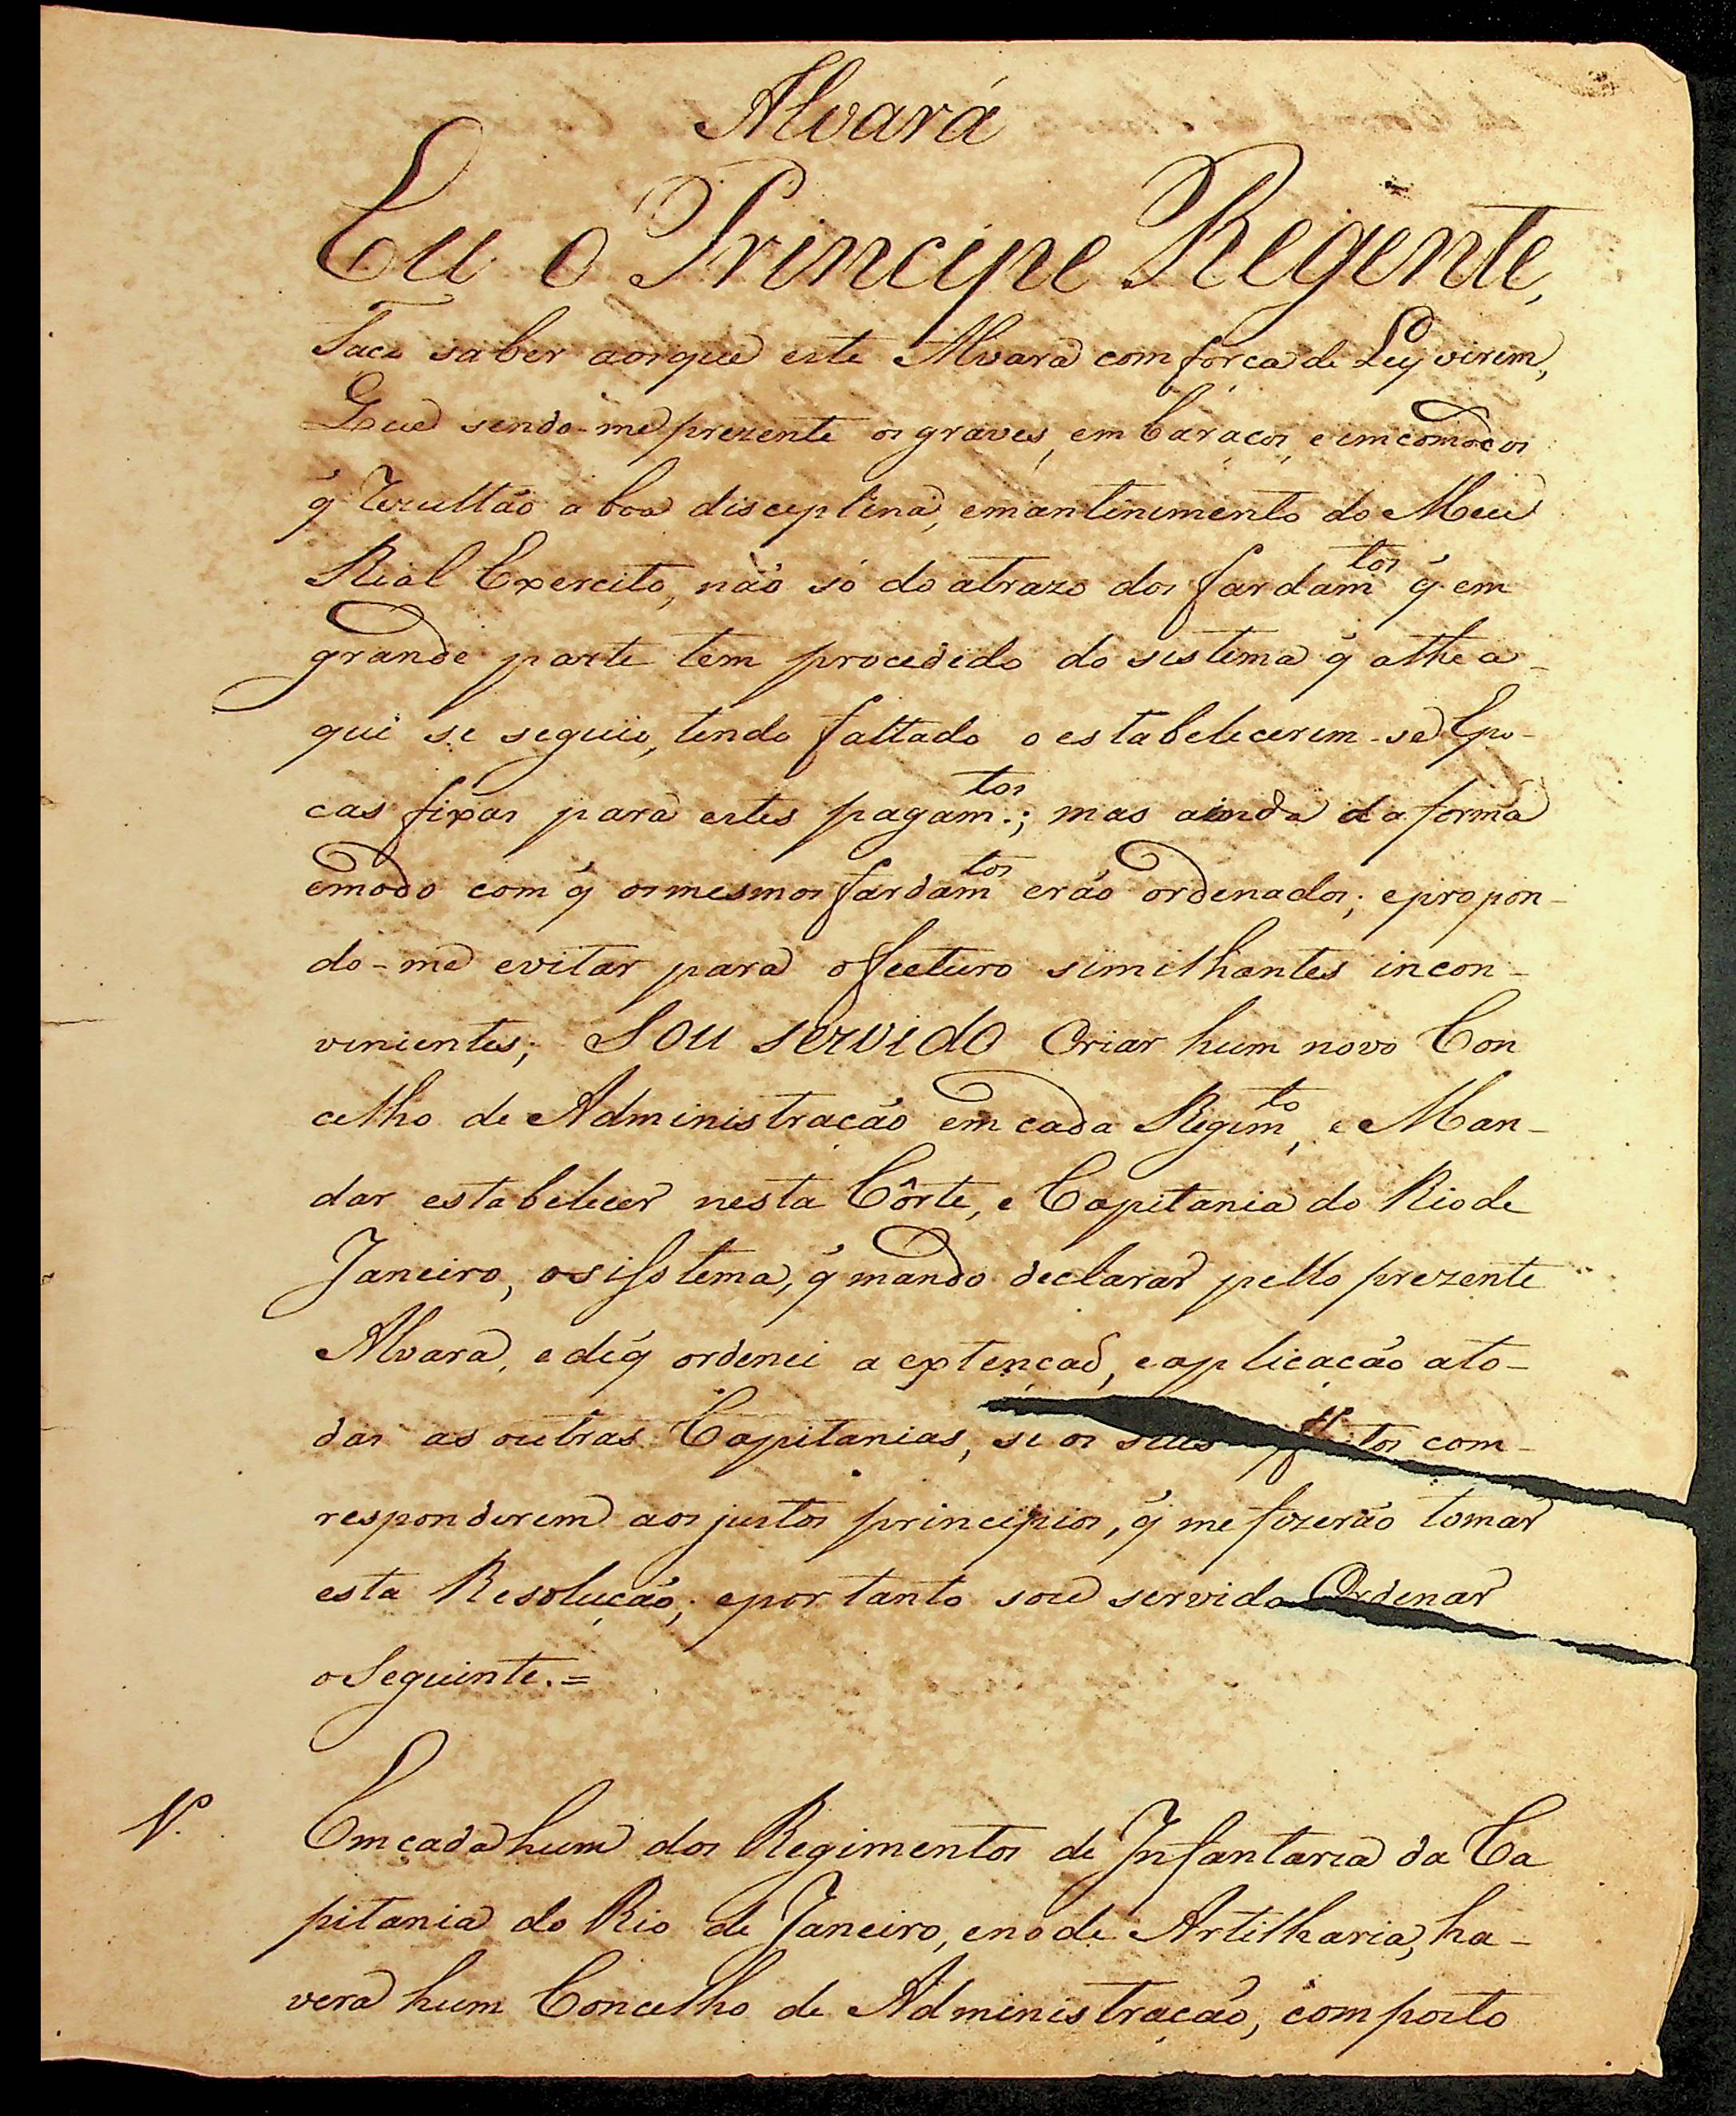 Alvará
Eu o Principe Regente,
Faço saber aos que este Alvará com força de Ley virem,
Que sendo-me prezente os graves, embaraços, e imcomodos
q̃ rezultão a boa disceplina, emantinimento do Meu
Rial Exercito, não só do atrazo dos fardamtos q̃ em
grande parte tem procedido do sistema q̃ athe a-
qui se seguio, tendo faltado o estabelicerem-se Epo-
cas fixas para estes pagamtos; mas ainda da forma
emodo com q̃ os mesmos fardamtos erão ordenados; epropon-
do-me evitar para ofucturo similhantes incon-
vinientes; Sou servido Criar hum novo Con
celho de Administração em cada Regimto, e Man-
dar estabelecer nesta Côrte, e Capitania do Rio de
Janeiro, osisstema, q̃ mando declarar pello prezente
Alvara, e déq̃ ordenei a extenção, eaplicação ato-
das as outras Capitanias, se os seus tos com-
responderem aos justos principios, q̃ me fizerão tomar
esta Resolução; epor tanto sou servido Ordenar
o Seguinte.=
Emcada hum dos Regimentos de Infantaria da Ca
pitania do Rio de Janeiro, enode Artilharia, ha-
verá hum Concelho de Administração, composto